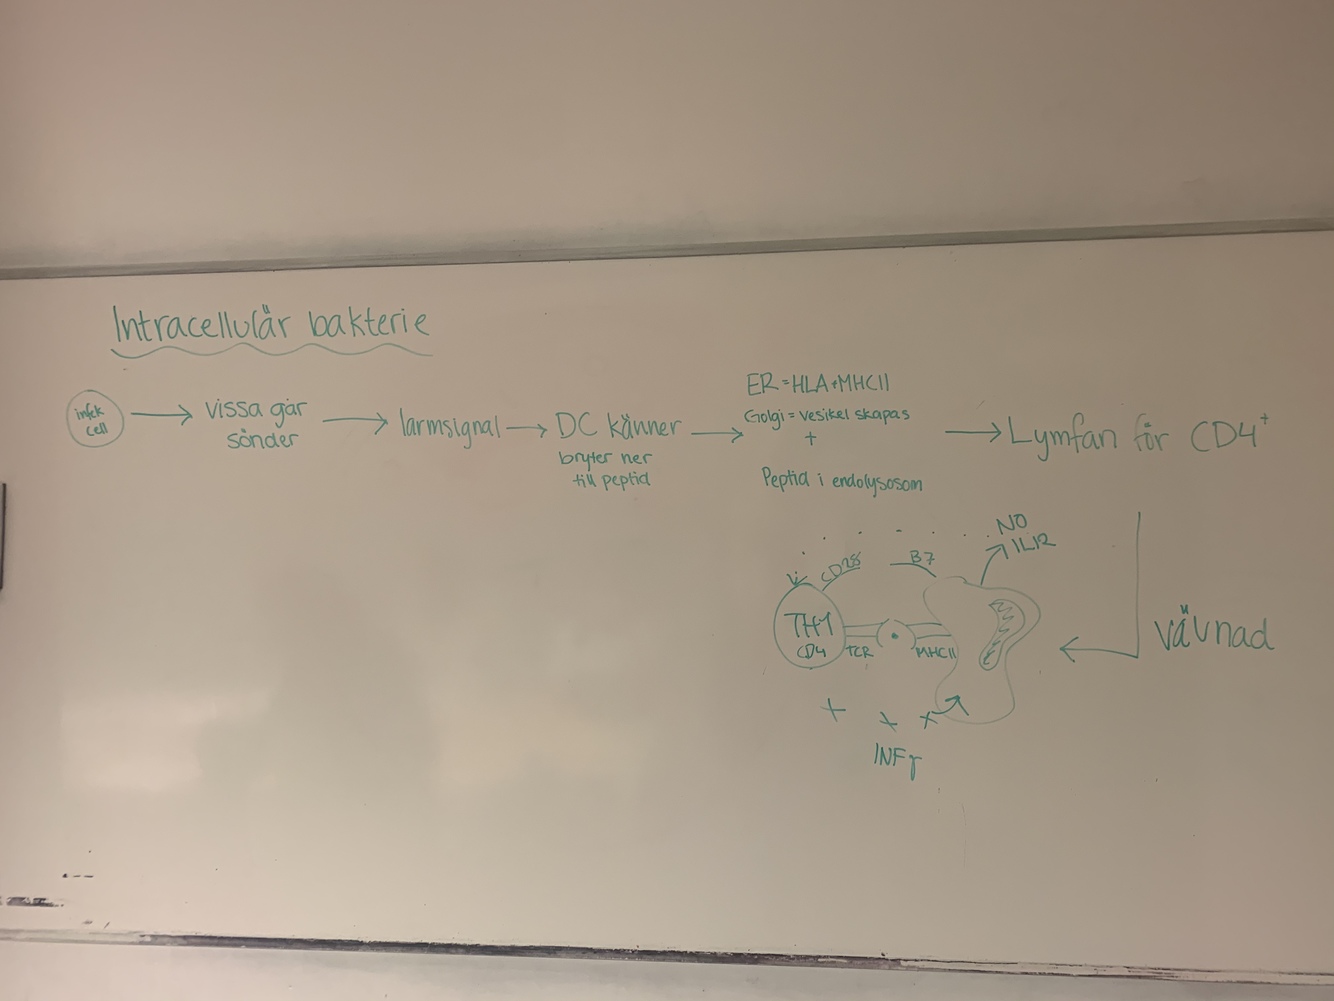 Intracellulär bakterie
infek
cell
vissa går
sönder
larmsignal
DC känner
bryter ner
till peptid
ER=HLA+MHCII
Golgi = vesikel skapas
+
Peptid i endolysosom
Lymfan för CD4+
vävnad
NO
IL12
CD28
B7
TH1
CD4
TCR
MHCII
INFγ